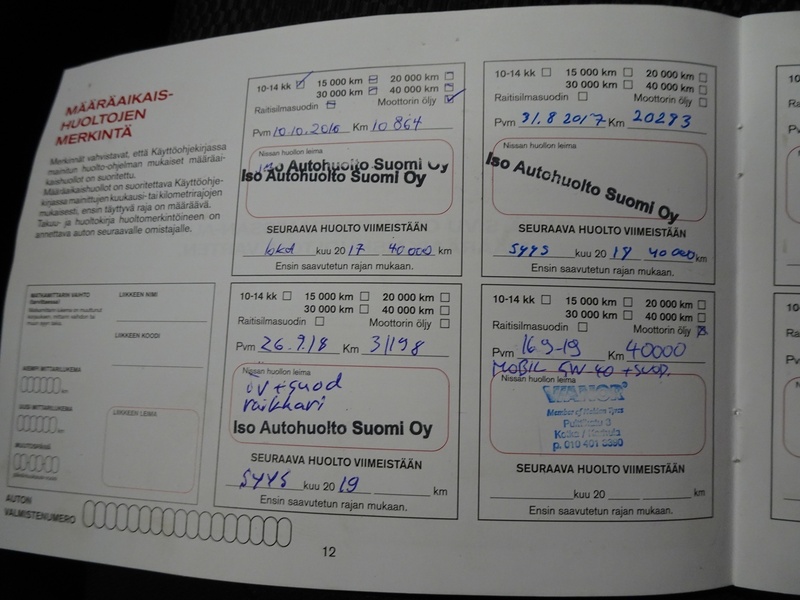 MÄÄRÄAIKAIS-
HUOLTOJEN
MERKINTÄ
Merkinnät vahvistavat, että Käyttöohjekirjassa
mainitun huolto-ohjelman mukaiset määräai-
kaishuollot on suoritettu.
Määräaikaishuollot on suoritettava Käyttöohje-
kirjassa mainittujen kuukausi- tai kilometrirajojen
mukaisesti, ensin täyttyvä raja on määräävä.
Takuu- ja huoltokirja huoltomerkintöineen on
annettava auton seuraavalle omistajalle.
10-14 kk 15 000 km 20 000 km
30 000 km 40 000 km
Raitisilmasuodin Moottorin öljy
Pvm 10.10.2016 Km 10 864
Nissan huollon leima
Iso Autohuolto Suomi Oy
Iso Autohuolto Suomi Oy
SEURAAVA HUOLTO VIIMEISTÄÄN
loka kuu 20 17 40000 km
Ensin saavutetun rajan mukaan.
10-14 kk 15 000 km 20 000 km
30 000 km 40 000 km
Raitisilmasuodin Moottorin öljy
Pvm 31.8 2017 Km 20293
Nissan huollon leima
Iso Autohuolto Suomi Oy
SEURAAVA HUOLTO VIIMEISTÄÄN
syys kuu 20 18 40000 km
Ensin saavutetun rajan mukaan.
MATKAMITTARIN VAIHTO
LIIKKEEN NIMI
LIIKKEEN KOODI
LIIKKEEN LEIMA
AUTON
VALMISTENUMERO
10-14 kk 15 000 km 20 000 km
30 000 km 40 000 km
Raitisilmasuodin Moottorin öljy
Pvm 26.9.18 Km 31198
Nissan huollon leima
öv + suod
raikkari
Iso Autohuolto Suomi Oy
SEURAAVA HUOLTO VIIMEISTÄÄN
syys kuu 20 19 km
Ensin saavutetun rajan mukaan.
10-14 kk 15 000 km 20 000 km
30 000 km 40 000 km
Raitisilmasuodin Moottorin öljy
Pvm 16.9-19 Km 40000
MOBIL 5W40 + SUOD.
Nissan huollon leima
VIANOR
Member of Nokian Tyres
SEURAAVA HUOLTO VIIMEISTÄÄN
kuu 20 km
Ensin saavutetun rajan mukaan.
12